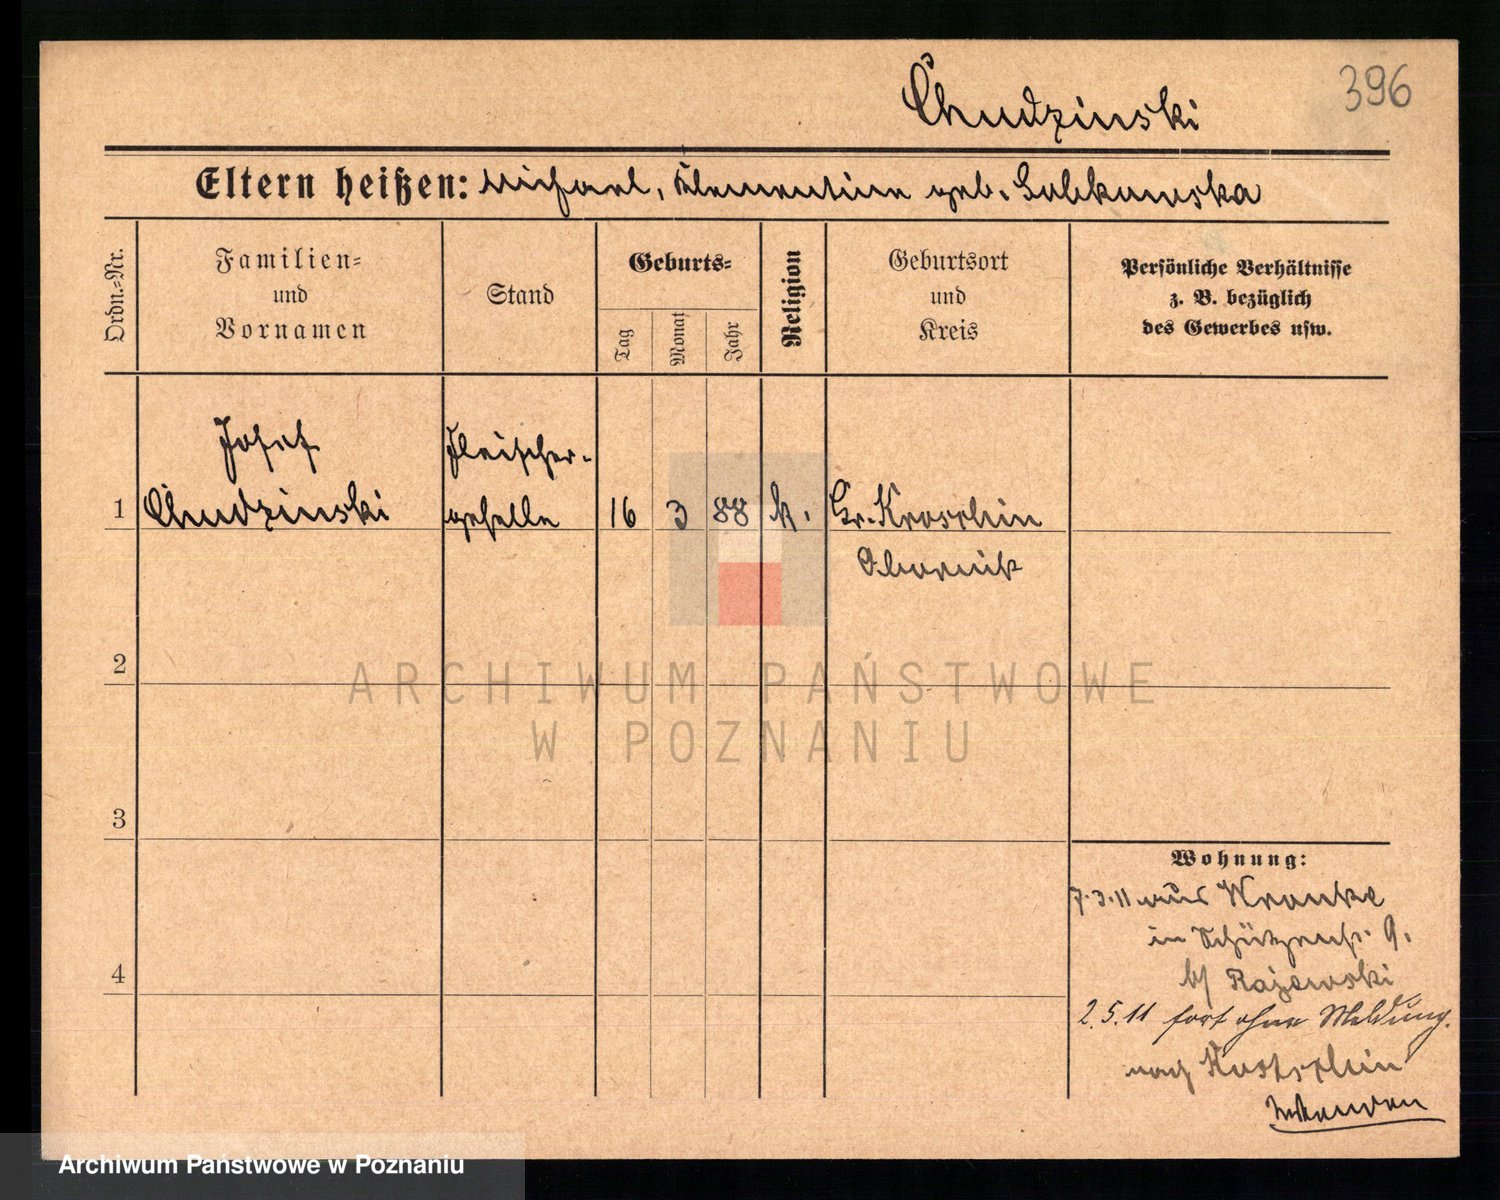 Chudzinski
396
Eltern heißen: Michael, Klementine geb. Sobkowska
Ordn.-Nr.
Familien- und Vornamen
Stand
Geburts-
Tag
Monat
Jahr
Religion
Geburtsort und Kreis
Persönliche Verhältnisse
z. B. bezüglich
des Gewerbes usw.
Josef
Chudzinski
Fleischer-
geselle
1
16
3
88
k.
Gr. Kroschin
Obornik
2
ARCHIWUM PAŃSTWOWE
W POZNANIU
3
4
Wohnung:
7.3.11 aus Wronke
in Schützenstr. 9.
b/ Rajewski
2.5.11 fort ohne Meldung.
nach Kostschin
Archiwum Państwowe w Poznaniu